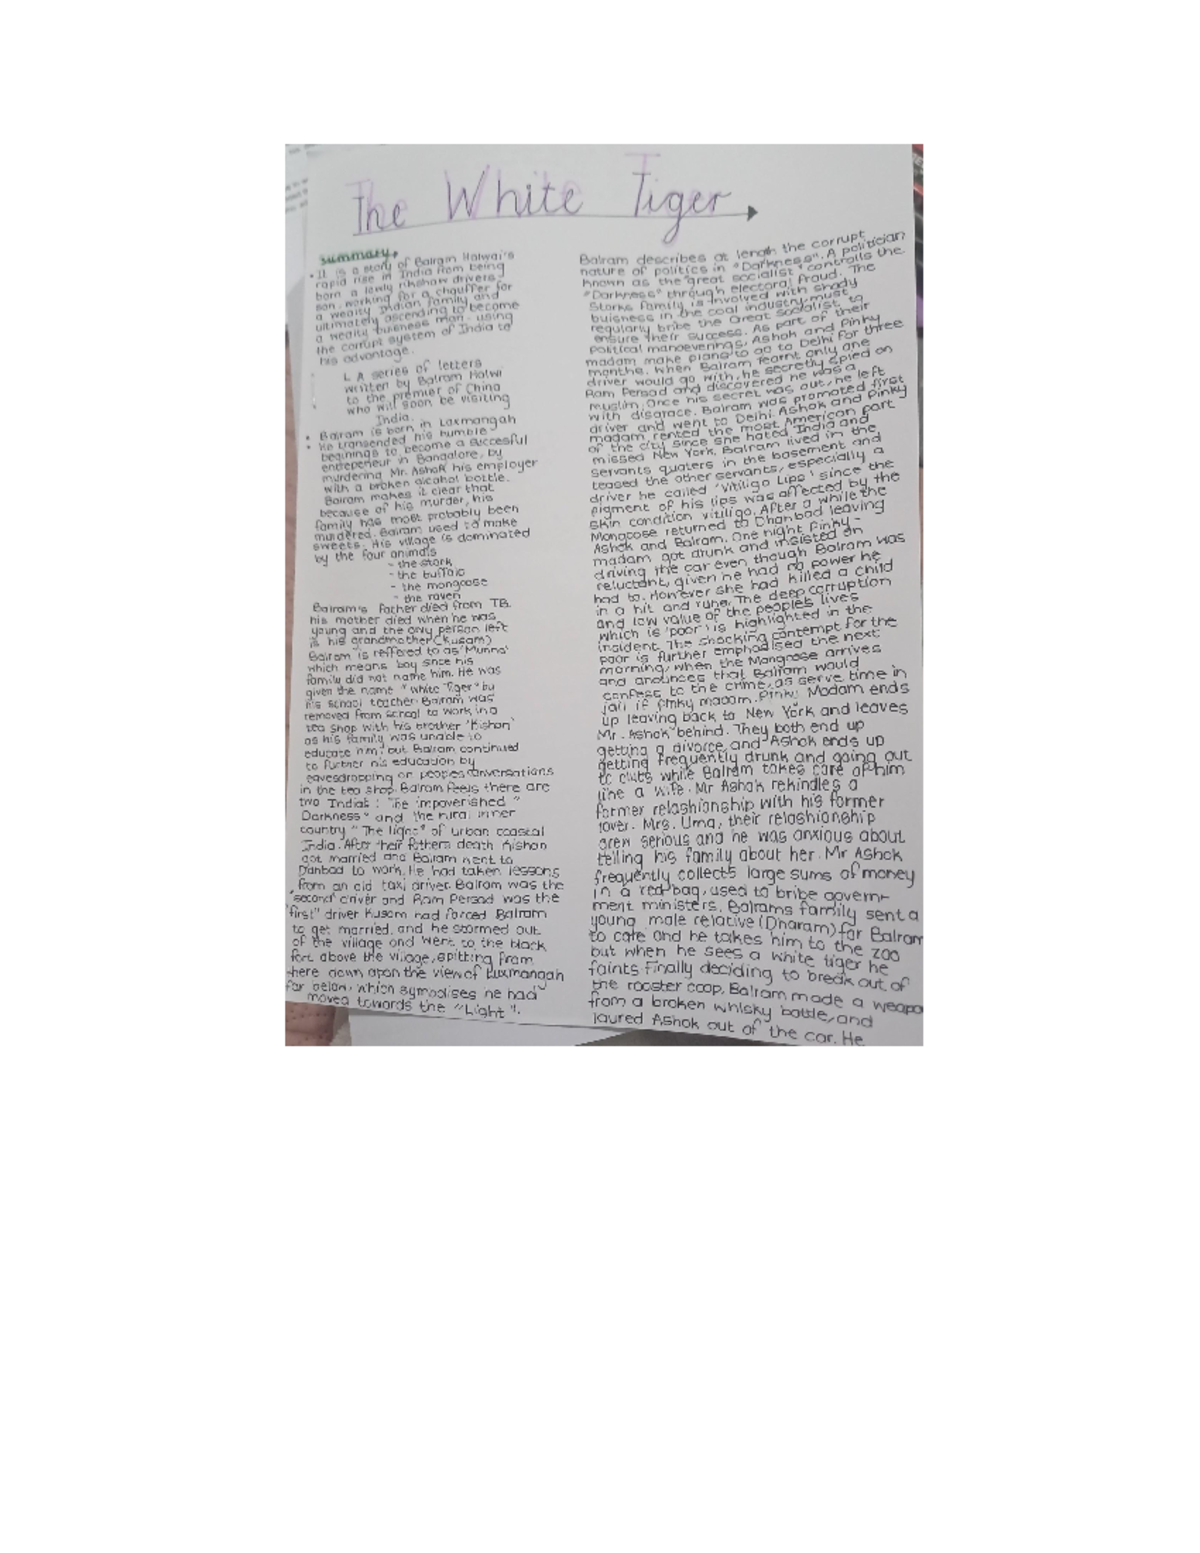 The White Tiger
summary
• It is a story of Balram Halwai's
rapid rise in India from being
born a lowly rikshaw drivers
son, working for a chauffer for
a wealty Indian family and
ultimately ascending to become
a wealty buisness man. using
the corrupt system of India to
his advantage.
L A series of letters
written by Balram Halwi
to the premier of China
who will soon be visiting
India.
• Balram is born in Laxmangah
• He transended his humble
beginings to become a succesful
entrepeneur in Bangalore, by
murdering Mr. Ashok his employer
with a broken alcohol bottle.
Balram makes it clear that
because of his murder, his
family has most probably been
murdered. Balram used to make
sweets. His village is dominated
by the four animals
- the stork
- the buffalo
- the mongoose
- the raven
Balram's father died from TB.
his mother died when he was
young and the only person left
is his grandmother (Kusam)
Balram is reffered to as 'Munna'
which means boy since his
family did not name him. He was
given the name "White Tiger" by
his school teacher. Balram was
removed from school to work in a
tea shop with his brother 'Kishan'
as his family was unable to
educate him, but Balram continued
to further his education by
eavesdropping on peoples conversations
in the tea shop. Balram feels there are
two India's : "The impoverished "
Darkness" and the rural inner
country "The light" of urban coastal
India. After their fathers death Kishan
got married and Balram went to
Danbad to work. He had taken lessons
from an old taxi driver. Balram was the
"second" driver and Ram Persad was the
"first" driver Kusam had forced Balram
to get married, and he stormed out
of the village and went to the black
fort above the village, spitting from
there down upon the view of Luxmangah
far below, which symoolises he had
moved towards the "Light".
Balram describes at length the corrupt
nature of politics in "Darkness". A politician
known as the "great socialist" controlls the
"Darkness" through electoral fraud. The
Storks family is involved with shady
buisness in the coal industry must
regularly bribe the Great Socialist to
ensure their success. As part of their
Political manoeverings, Ashok and Pinky
madam make plans to go to Delhi for three
months. When Balram learnt only one
driver would go with, he secretly spied on
Ram Persad and discovered he was a
muslim. Once his secret was out, he left
with disgrace. Balram was promoted first
driver and went to Delhi. Ashok and Pinky
madam rented the most American part
of the city since she hated India and
missed New York. Balram lived in the
servants quaters in the basement and
teased the other servants, especially a
driver he called 'Vitiligo Lips' since the
pigment of his lips was affected by the
skin condition vitiligo. After a while the
Mongoose returned to Dhanbad leaving
Ashok and Balram. One night Pinky-
madam got drunk and insisted on
driving the car even though Balram was
reluctant, given he had no power he
had to. However she had killed a child
in a hit and rune. The deep corruption
and low value of the peoples lives
which is 'poor' is highlighted in the
insident. The shocking contempt for the
poor is further emphasised the next
morning, when the Mongoose arrives
and anounces that Balram would
confess to the crime, as serve time in
jail if Pinky madam. Pinki Madam ends
up leaving back to New York and leaves
Mr. Ashok behind. They both end up
getting a divorce, and Ashok ends up
getting frequently drunk and going out
to clubs while Balram takes care of him
like a wife. Mr Ashok rekindles a
former relashionship with his former
lover. Mrs. Uma, their relashionship
grew serious and he was anxious about
telling his family about her. Mr Ashok
frequently collects large sums of money
in a red bag, used to bribe govern-
ment ministers. Balrams farmily sent a
young male relative (Dharam) for Balram
to care and he takes him to the zoo
but when he sees a white tiger he
faints. Finally deciding to break out of
the rooster coop, Balram made a weapo
from a broken whisky bottle, and
laured Ashok out of the car. He